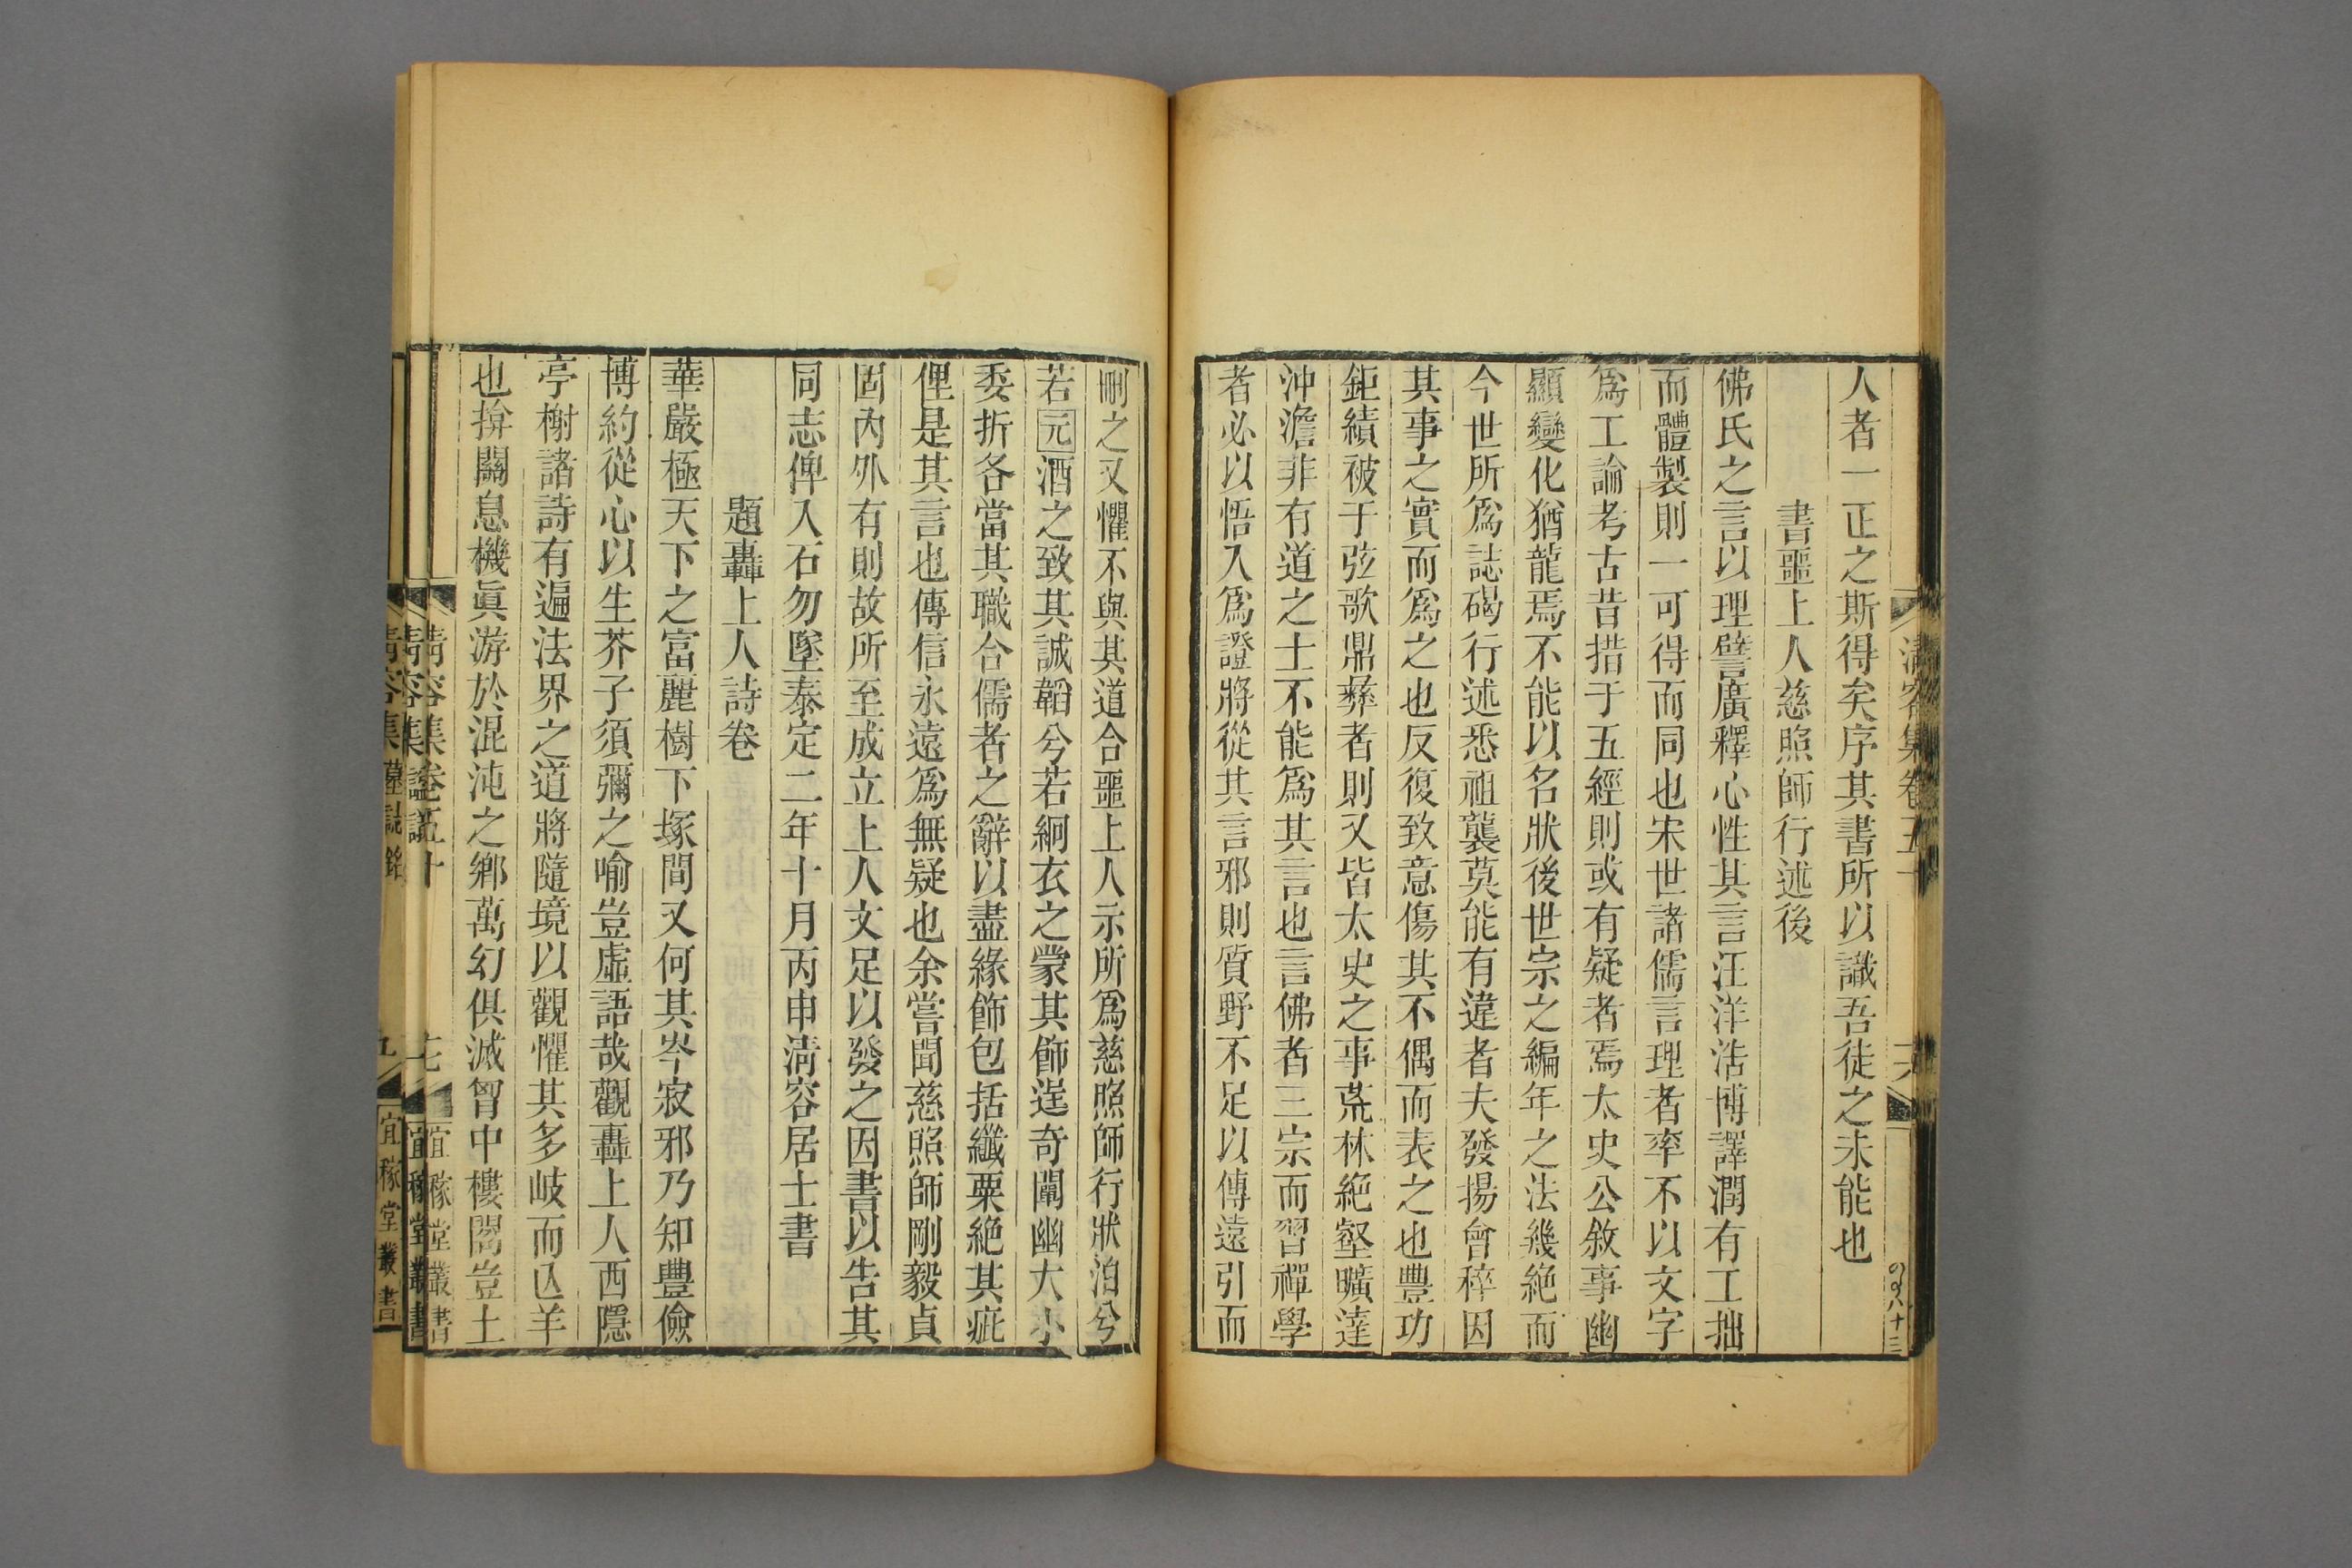 人者一正之斯得矣序其書所以識吾徒之未能也
書噩上人慈照師行述後
佛氏之言以理譬廣釋心性其言汪洋浩博譯潤有工拙
而體製則一可得而同也宋世諸儒言理者率不以文字
爲工論考古昔措于五經則或有疑者焉太史公敘事幽
顯變化猶龍焉不能以名狀後世宗之編年之法幾絶而
今世所爲誌碣行述悉祖襲莫能有違者夫發揚會稡因
其事之實而爲之也反復致意傷其不偶而表之也豐功
鉅績被于弦歌鼎彝者則又皆太史之事荒林絶壑曠達
沖澹非有道之士不能爲其言也言佛者三宗而習禪學
者必以悟入爲證將從其言邪則質野不足以傳遠引而
刪之又懼不與其道合噩上人示所爲慈照師行狀泊兮
若元酒之致其誠韜兮若絅衣之蒙其飾逞奇闡幽大小
委折各當其職合儒者之辭以盡緣飾包括纖粟絶其疵
俚是其言也傳信永遠爲無疑也余嘗聞慈照師剛毅貞
固內外有則故所至成立上人文足以發之因書以告其
同志俾入石勿墜泰定二年十月丙申清容居士書
題轟上人詩卷
華嚴極天下之富麗樹下塚間又何其岑寂邪乃知豐儉
博約從心以生芥子須彌之喻豈虛語哉觀轟上人西隱
亭榭諸詩有遍法界之道將隨境以觀懼其多岐而亾羊
也揜關息機眞游於混沌之鄉萬幻俱滅胷中樓閣豈土
清容集卷五十
宜稼堂叢書